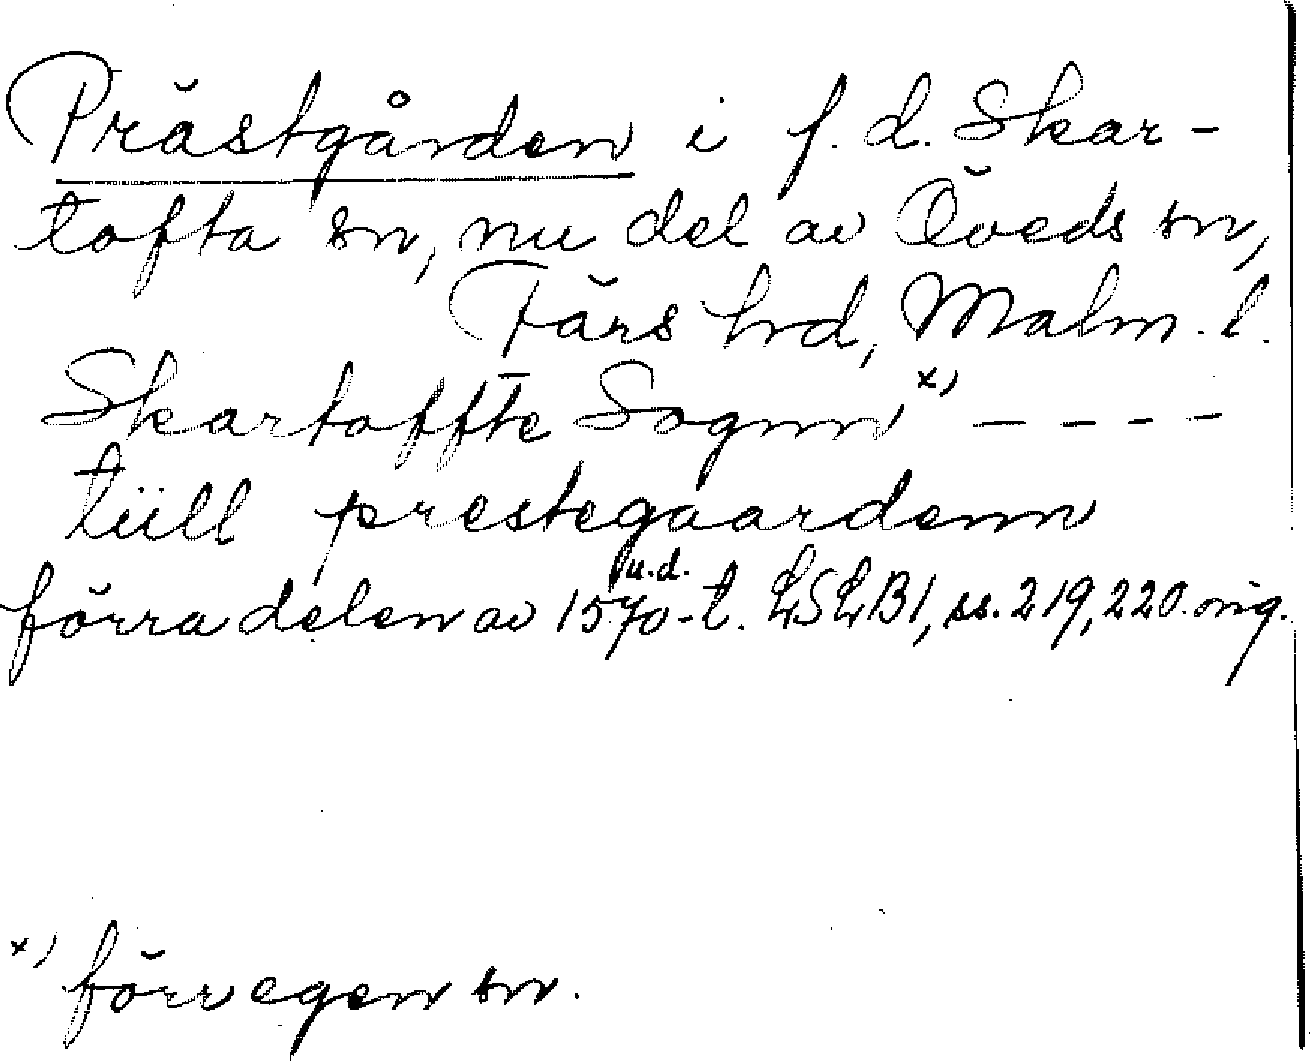 Prästgården i f.d. Skar-
tofta sn, nu del av Öveds sn,
Färs hd, Malm. l.
Skartoffte Sognn x) - - - -
tüll prestegaardenn
u.d.
förra delen av 1570-t. LSLB1, ss. 219, 220. orig.
x) förr egen sn.